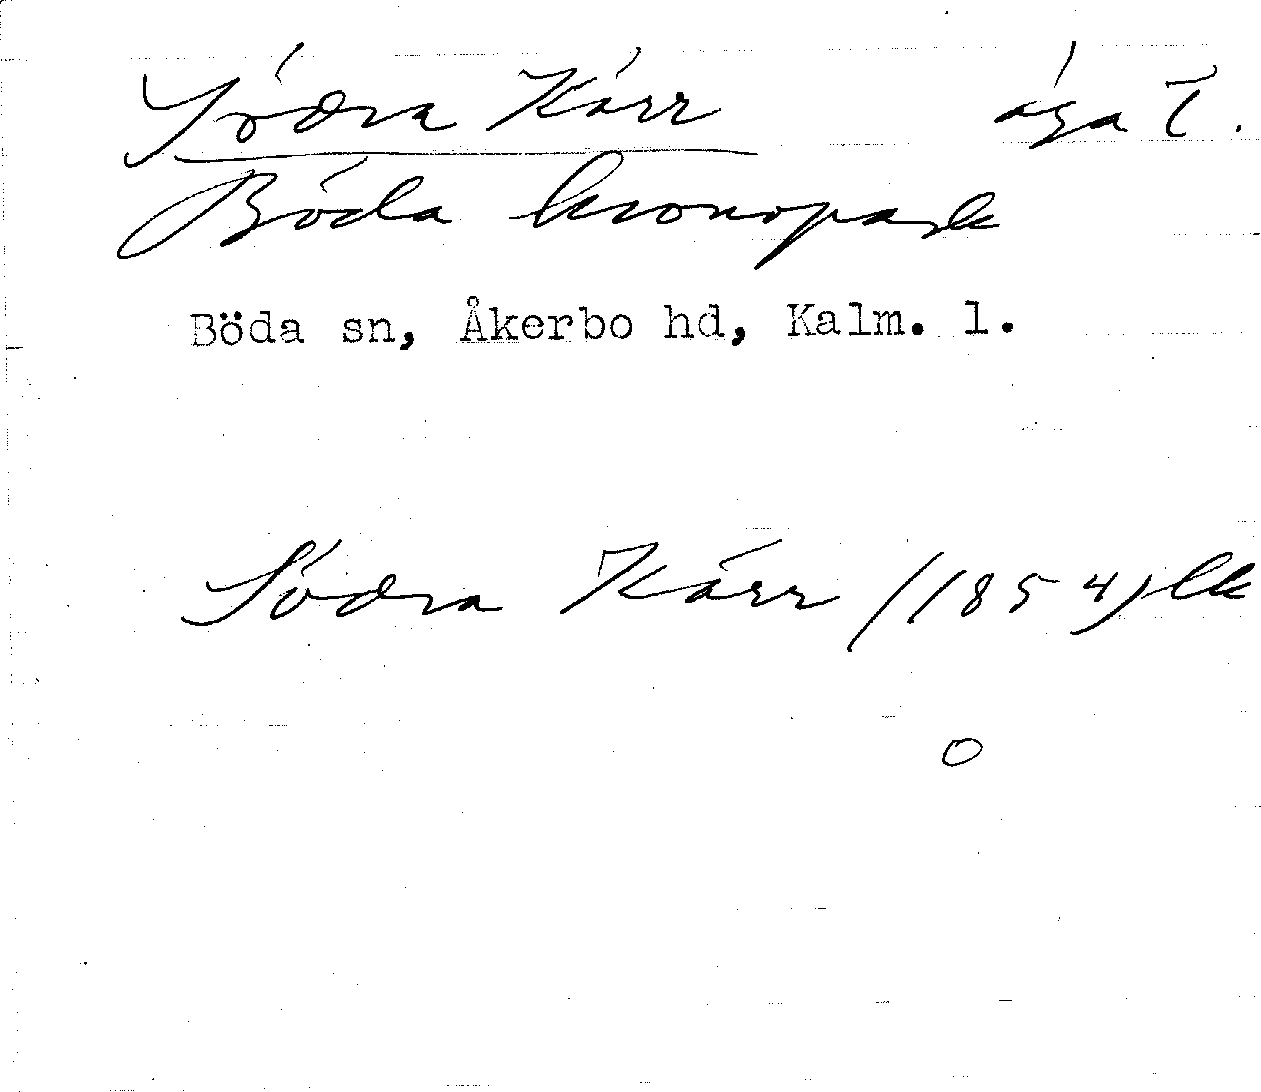 Södra Kärr äga T.
Böda kronopark
Böda sn, Åkerbo hd, Kalm. l.
Södra Kärr (1854) lk